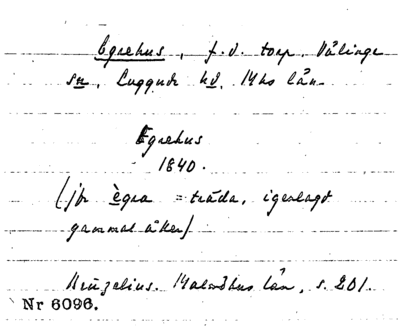 Egrehus, f.d. torp, Välinge
sn, Luggude hd, M-hs län
Egrehus
1840.
(jfr ègra = träda, igenlagd
gammal åker)
Kruzelius. Malmöhus län, s. 201.
Nr 6096.